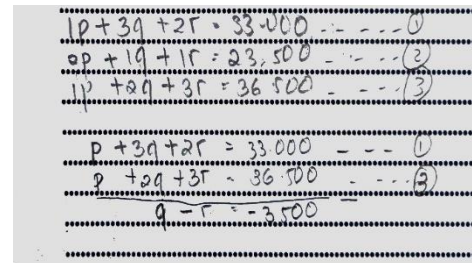 1p + 3q + 2r = 33.000 ----- ①
2p + 1q + 1r = 23,500 ----- ②
1p + 2q + 3r = 36 500 ----- ③
p + 3q + 2r = 33.000 --- ①
p + 2q + 3r = 36.500 ---- ③
q - r = -3500